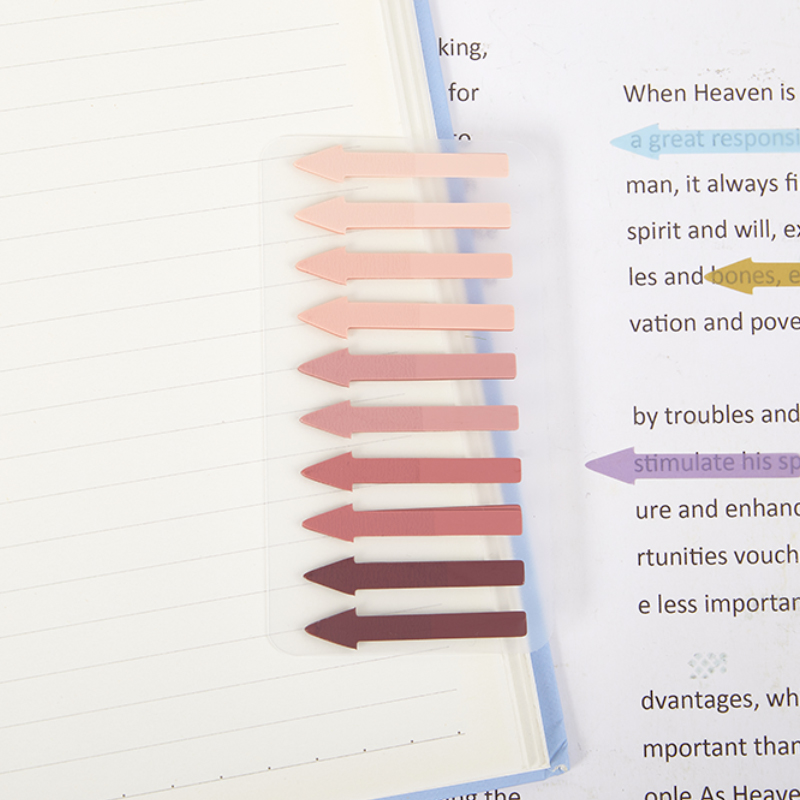 king,
for
to
When Heaven is
a great responsi
man, it always fi
spirit and will, ex
les and bones, e
vation and pove
by troubles and
stimulate his sp
ure and enhanc
rtunities vouch
e less importan
dvantages, wh
mportant than
ople As Heave
ng the